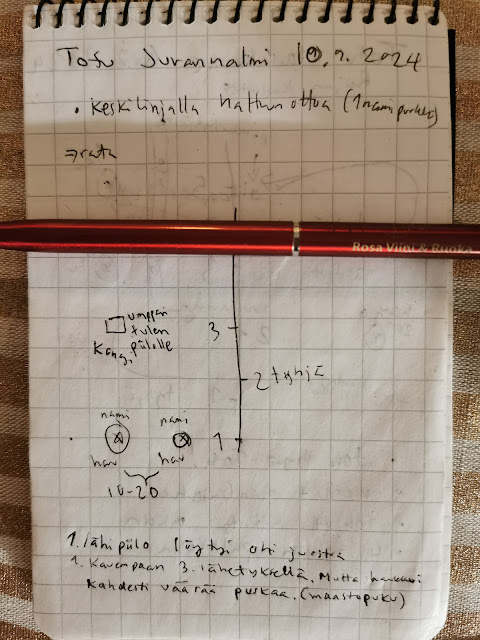 Tofu Jurannalmi 10.9.2024
• Keskilinjalla hattun ottoa (1 nami purkki)
⇒ rata
Rosa Viini & Ruoka
umppari
tulen
Kang. piilolle
3
2 tyhjä
nami nami
1
hav hav
10-20
1. lähipiilo löytyi ohi juostua
1. Kavempaan 3. lähetyksellä. Mutta haukkui
Kahdesti väärää purkkaa. (maastopuku)